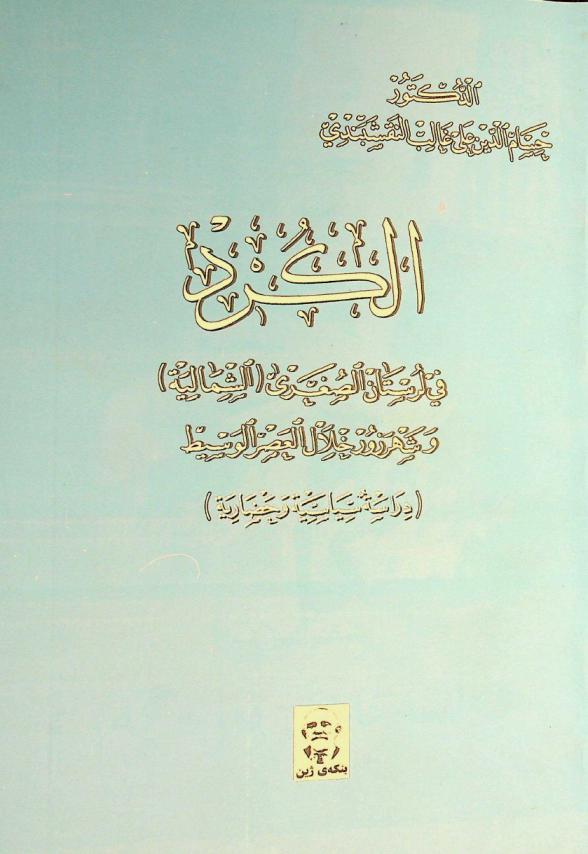 الدكتور
حسام الدين علي غالب النقشبندي
الكُرْد
في لرستان الصغرى (الشمالية)
وشهرزور خلال العصر الوسيط
(دراسة سياسية وحضارية)
بنكەى ژین